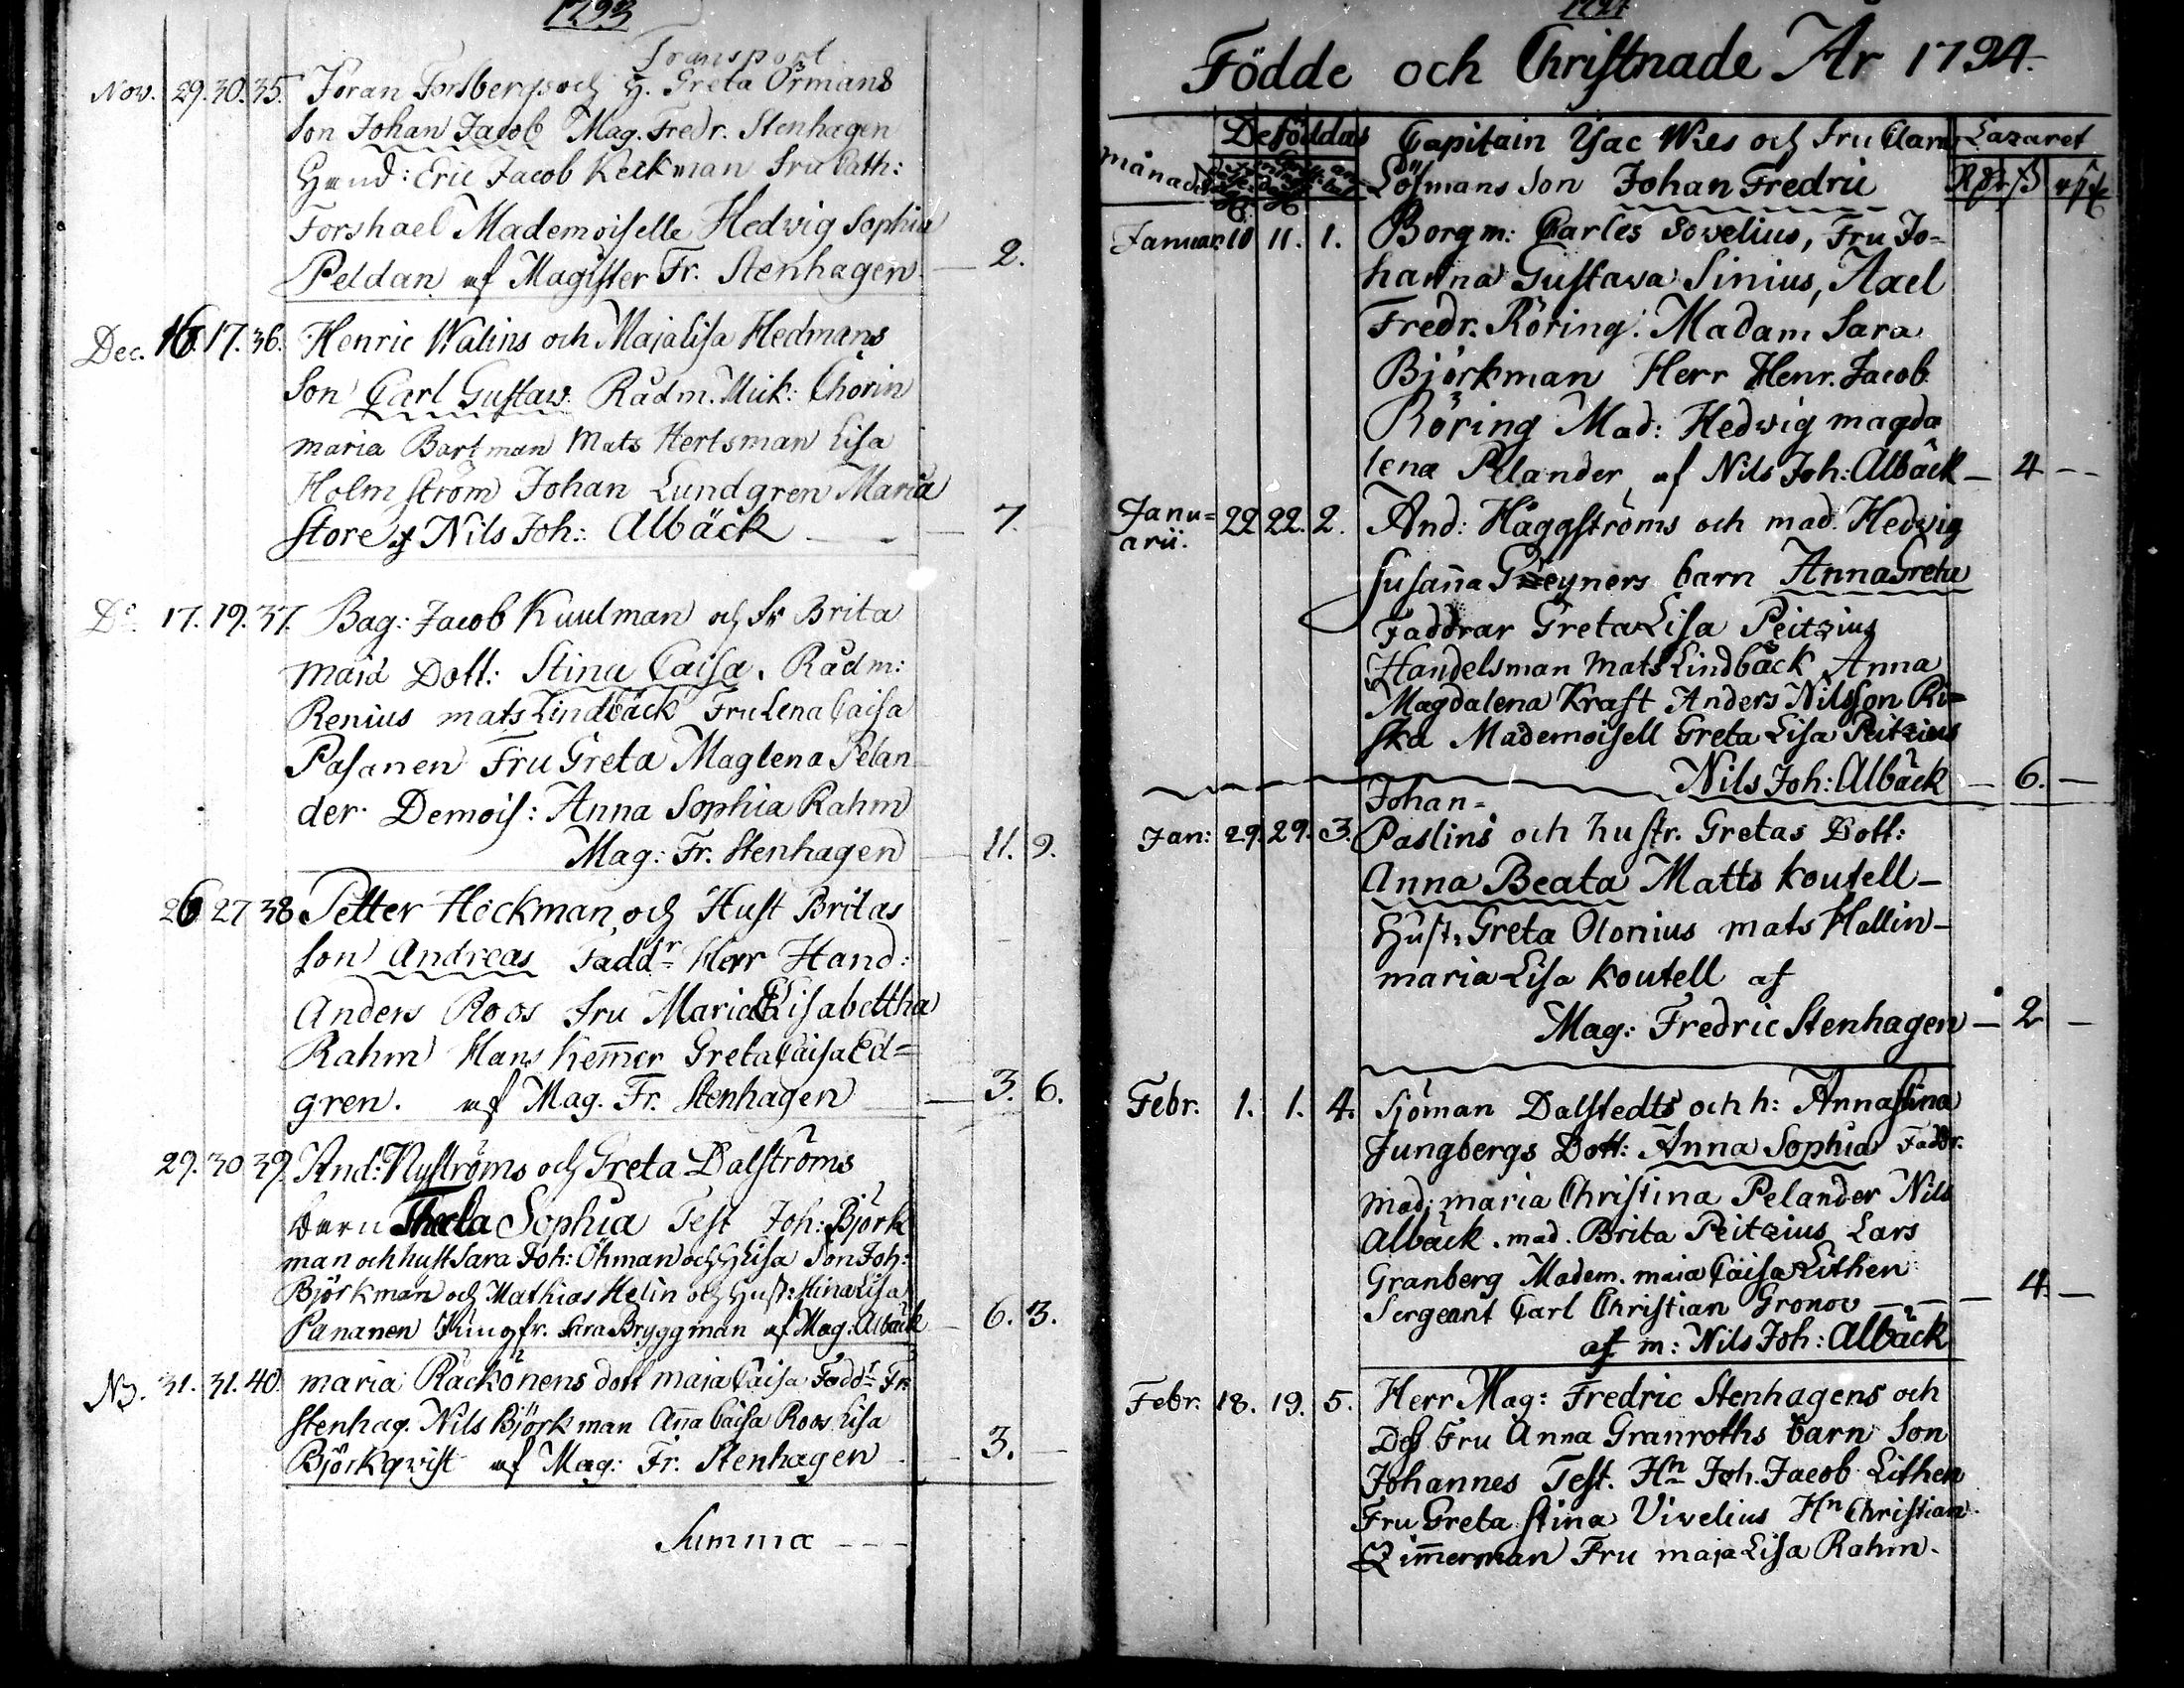 1793
Transport
Nov. 29. 30. 35. Jöran Forsbergs och H. Greta Örmans
Son Johan Jacob Mag. Fredr. Stenhagen
Hand: Eric Jacob Keckman Fru Cath:
Forshael Mademoiselle Hedvig Sophia
Peldan af Magister Fr. Stenhagen — 2.
Dec. 16. 17. 36. Henric Walins och Maja Lisa Hedmans
Son Carl Gustaw Rådm. Mik: Chorin
maria Bartman Mats Hertsman Lisa
Holmström Johan Lundgren Maria
Store af Nils Joh: Albäck — 7.
Do. 17. 19. 37. Bag: Jacob Kuulman och Fr Brita
maja Dott: Stina Caisa. Rådm:
Renius mats Lindbäck Fru Lena Caisa
Pasanen Fru Greta Maglena Pelan-
der Demois: Anna Sophia Rahm
Mag: Fr. Stenhagen — 11. 9.
26 27 38 Petter Höckman, och Hust Britas
Son Andreas Faddr Herr Hand:
Anders Roos Fru Maria Elisabettha
Rahm Hans Kemer Greta Caisa Ed=
gren. af Mag. Fr. Stenhagen — 3. 6.
29. 30 39. And: Nyströms och Greta Dalströms
barn Thecla Sophia Test Joh: Björk
man och hust Sara Joh: Öhman och H Lisa Son Joh:
Björkman och Mathias Helin och Hust: Stina Lisa
Pananen Jungfr. Sara Bryggman af Mag: Albäck — 6. 3.
31. 31. 40. maria Räckönens dott maja Caisa Faddr Fr
Stenhag. Nils Björkman Aña Caisa Roos Lisa
Björkqwist af Mag: Fr. Stenhagen — 3. —
Summa - - -
1794
Födde och Christnade År 1794.
De föddas Capitain Isac Wies och Fru Clara Lazaret
Månader Löfmans Son Johan Fredric
Januar. 10 11. 1. Borgm: Carles Sovelius, Fru Jo=
hanna Gustava Sinius, Axel
Fredr. Röring. Madam Sara
Björkman Herr Henr. Jacob
Röring Mad: Hedwig magda
lena Pelander, af Nils Joh: Albäck — 4 —
Janu=
arii. 22 22. 2. And: Häggströms och mad. Hedvig
Susaña barn Anna Greta
Faddrar Greta Lisa Peitzius
Handelsman Mats Lindbäck Anna
Magdalena Kraft Anders Nilsson Ri=
ska Mademoisell Greta Lisa Peitzius
Nils Joh: Albäck — 6. —
Johan=
Jan: 29. 29. 3. Paslins och hustr. Gretas Dott:
Anna Beata Matts Koutell —
Hust: Greta Olonius mats Hallin —
maria Lisa Koutell af
Mag: Fredric Stenhagen — 2 —
Febr. 1. 1. 4. Sjöman Dalstedts och h: Anna Stina
Jungbergs Dott: Anna Sophia Faddr.
mad: maria Christina Pelander Nils
Albäck. mad. Brita Peitzius Lars
Granberg Madem. maia Caisa Lithen
Sergeant Carl Christian Gronov — — 4. —
af m: Nils Joh: Albäck
Febr. 18. 19. 5. Herr Mag: Fredric Stenhagens och
Dess Fru Anna Granroths barn Son
Johannes Test. Hn Joh. Jacob Lithen
Fru Greta Stina Vivelius Hn Christian
Zimmerman Fru maja Lisa Rahm.